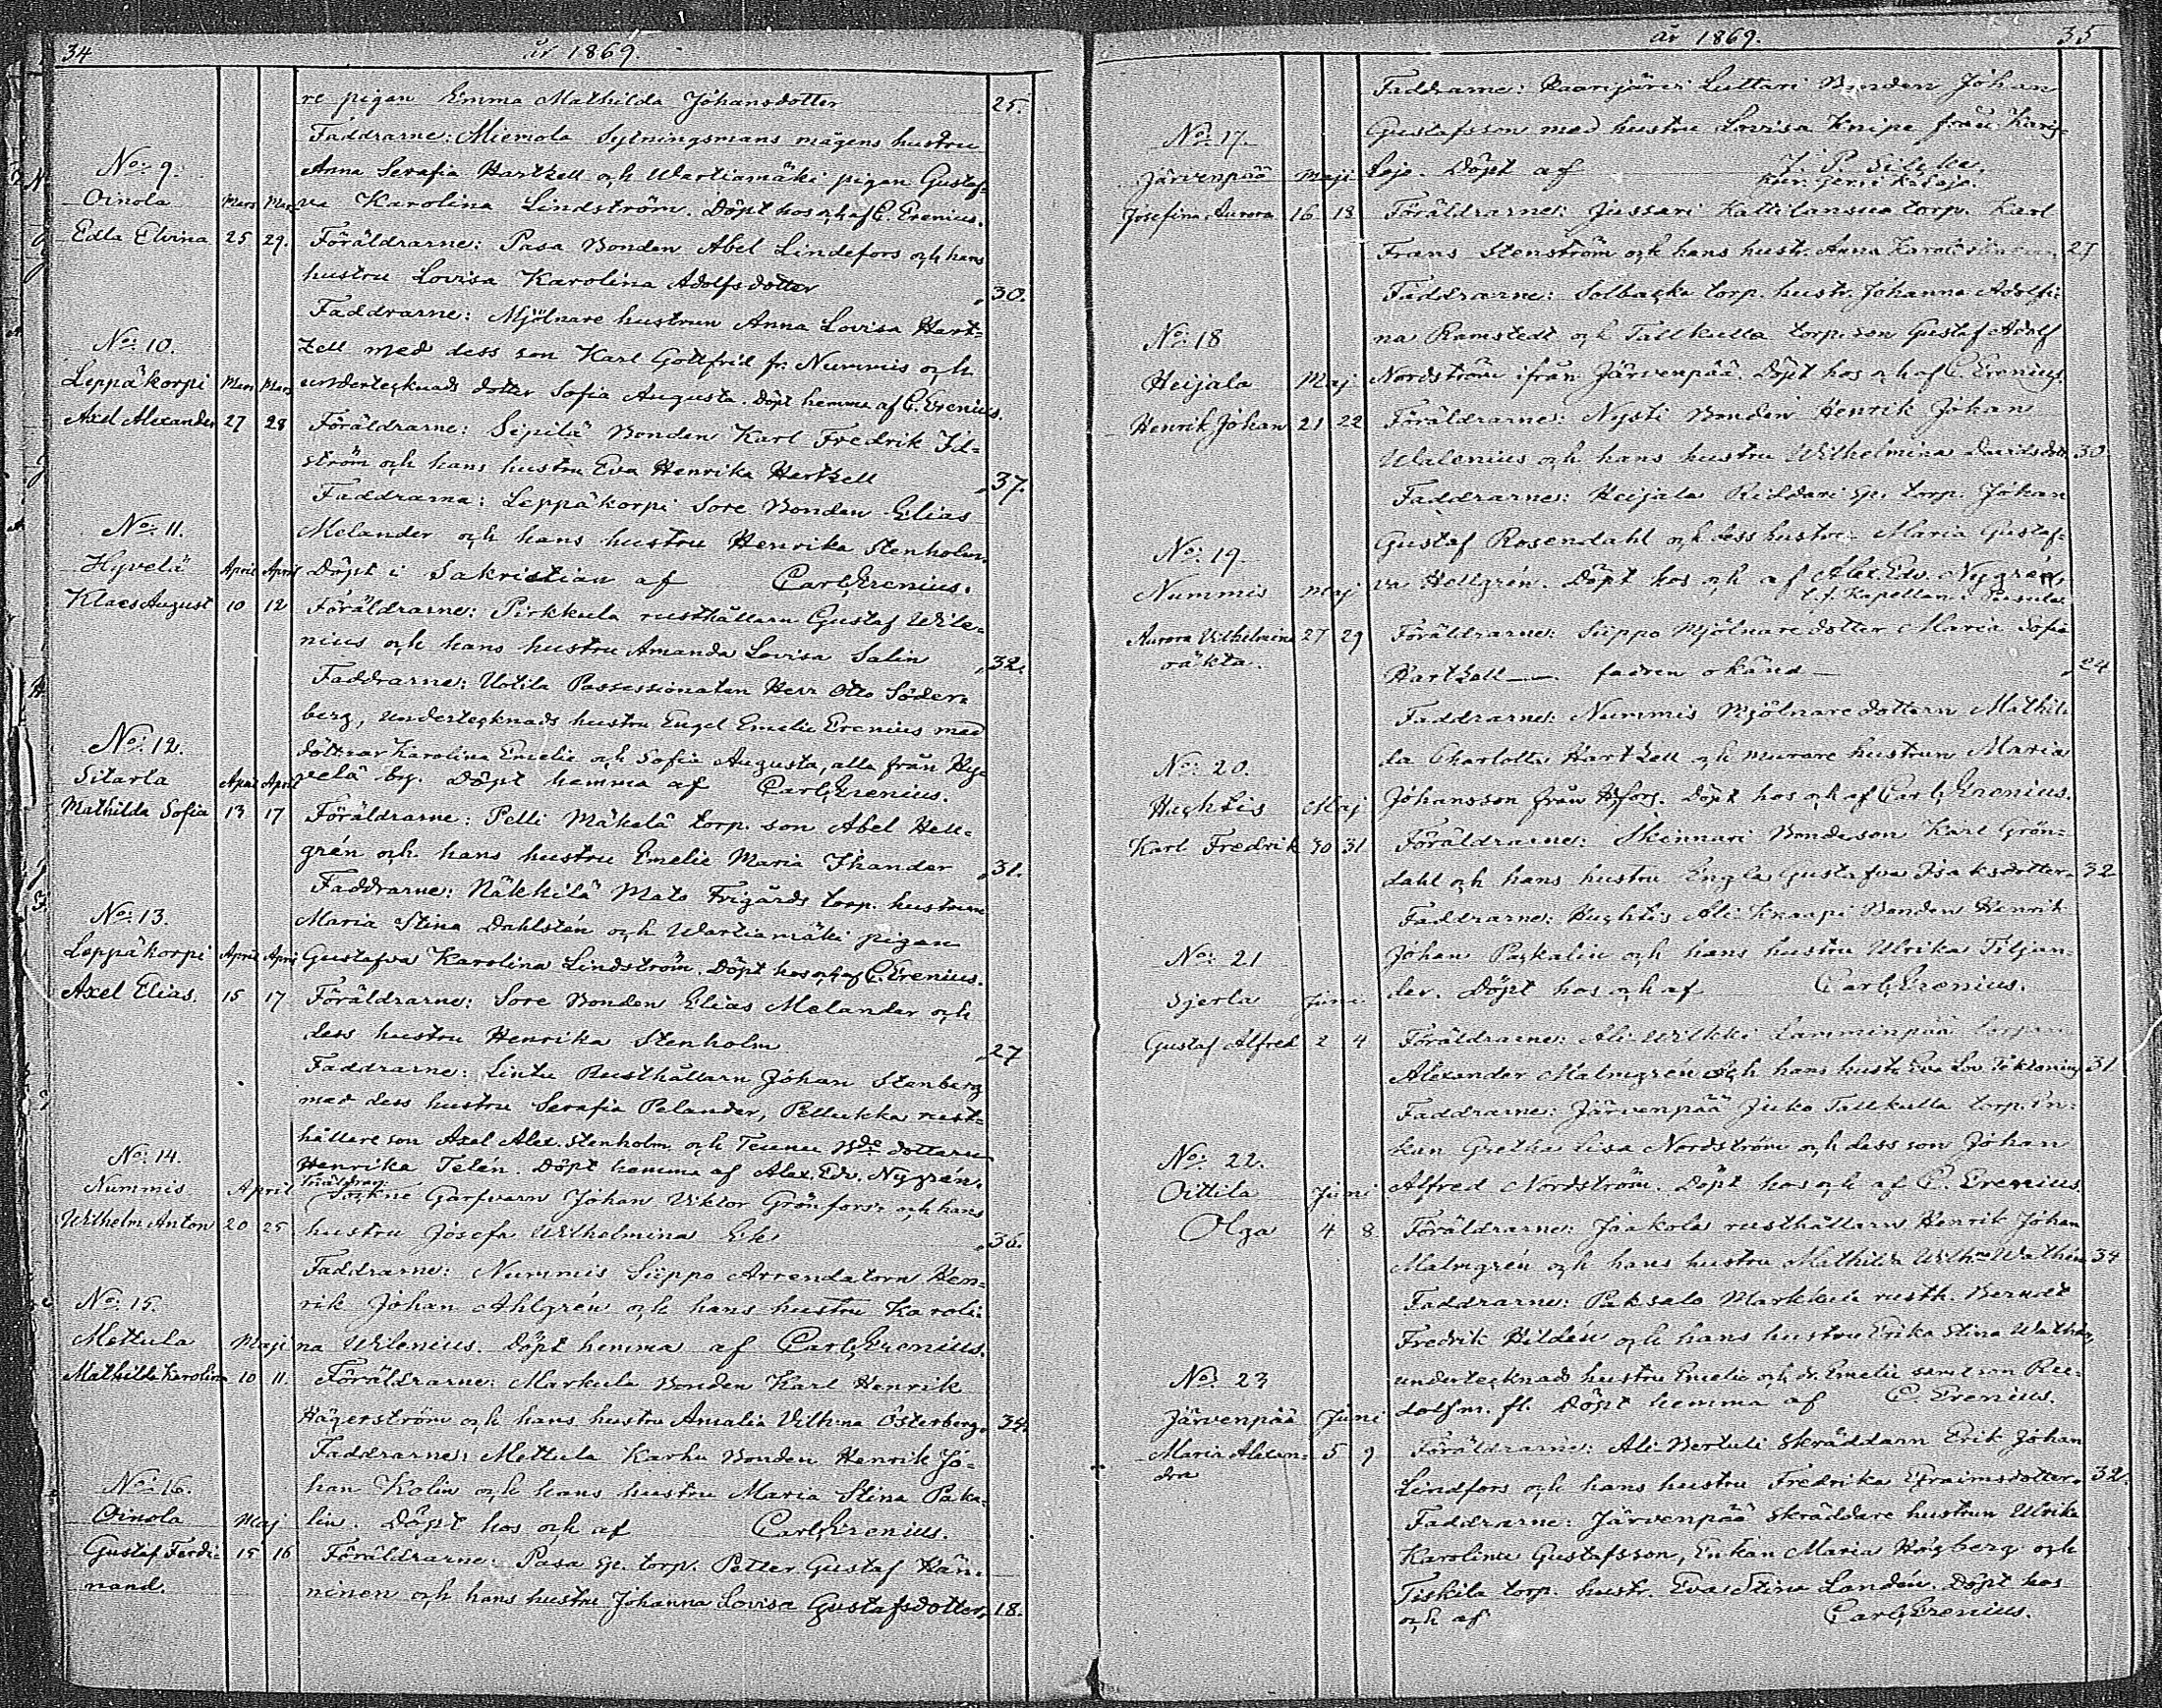 34 år 1869.
re pigan Emma Mathilda Johansdotter 25.
Faddrarne: Miemola Sytningsmans mågens hustru
No: 9. Anna Serafia Hartzell och Wartiamäki pigan Gustaf-
Oinola Mars Mars va Karolina Lindström. Döpt hos och af C. Erenius.
Edla Elvina 25 29. Föräldrarne: Pasa Bonden Abel Lindefors och hans
hustru Lovisa Karolina Adolfsdotter 30.
Faddrarne: Mjölnare hustrun Anna Lovisa Hart-
No: 10. zell med dess son Karl Gottfrid fr. Nummis och
Leppäkorpi Mars Mars undertecknads dotter Sofia Augusta. Döpt hemma af C. Erenius.
Axel Alexander 27 28 Föräldrarne: Sipilä Bonden Karl Fredrik Id-
ström och hans hustru Eva Henrika Hartzell 37.
Faddrarna: Leppäkorpi Sore Bonden Elias
No: 11. Melander och hans hustru Henrika Stenholm.
Hyvelä April April Döpt i Sakristian af Carl Erenius.
Klaes August 10 12 Föräldrarne: Pirkkula rusthållarn Gustaf Wile-
nius och hans hustru Amanda Lovisa Salin 32.
Faddrarne: Uotila Possessionaten Herr Otto Söder-
berg, undertecknads hustru Engel Emelie Erenius med
No: 12. döttrar Karolina Emelie och Sofia Augusta, alla från Hy-
Sitarla April April velä by. Döpt hemma af Carl Erenius.
Mathilda Sofia 13 17 Föräldrarne: Pelli Mäkelä torp. son Abel Hell-
grén och hans hustru Emelie Maria Ihander 31.
Faddrarne: Näkkilä Mats Frigårds torp. hustrun
No: 13. Maria Stina Dahlstén och Wartiamäki pigan
Leppäkorpi April April Gustafva Karolina Lindström. Döpt hos och af C. Erenius.
Axel Elias. 15 17 Föräldrarne: Sore Bonden Elias Melander och
dess hustru Henrika Stenholm 27
Faddrarne: Lintu Rusthållarn Johan Stenberg
med dess hustru Serafia Pelander, Pellukka rust-
No: 14. hållare son Axel Alex. Stenholm och Teunu Bde dottern
Henrika Telén. Döpt hemma af Alex. Edv. Nygrén.
Föräldrar:
Nummis April Sockne Garfvarn Johan Viktor Grönfors och hans
Wilhelm Anton 20 25 hustru Josefa Wilhelmina Ek 36.
Faddrarne: Nummis Siippo Arrendatorn Hen-
No: 15. rik Johan Ahlgrén och hans hustru Karoli-
Mettula Maji na Wilenius. Döpt hemma af Carl Erenius.
Mathilda Karolina 10 11. Föräldrarne: Markula Bonden Karl Henrik
Hägerström och hans hustru Amalia Vilhna Österberg. 34.
Faddrarne: Mettula Karhu Bonden Henrik Jo-
No: 16. han Kalin och hans hustru Maria Stina Paka-
Oinola Maj lin. Döpt hos och af Carl Erenius.
Gustaf Ferdi- 15 16 Föräldrarne: Pasa Sp. torp. Petter Gustaf Hän-
nand. ninen och hans hustru Johanna Lovisa Gustafsdotter. 18.
år 1869. 35
Faddrarne: Luttari Bonden Johan
No: 17. Gustafsson med hustru Lovisa Knipe från Karis-
Järvenpää Maji lojo. Döpt af
Josefina Aurora 16 18 Föräldrarne: Jussari Kattilansuo torp. Karl
Frans Stenström och hans hustr. Anna 27
Faddrarne: Solbacka torp. hustr. Johanna Adolfi-
No: 18 na Ramstedt och Tallkulla torp. son Gustaf Adolf
Heijala Maj Nordström ifrån Järvenpää. Döpt hos och af C. Erenius.
Henrik Johan 21 22 Föräldrarne: Nysti Bonden Henrik Johan
Walenius och hans hustru Wilhelmina Davidsdotter 30
Faddrarne: Heijala Riddari Sp. torp. Johan
No: 19. Gustaf Rosendahl och dess hustru Maria Gustaf-
Nummis Maj va Hellgrén. Döpt hos och af Alex. Edv. Nygrén,
t.f. Kapellan i Pusula
Aurora Wilhelmina 27 29 Föräldrarne: Siippo Mjölnare dotter Maria Sofia
oäkta. Hartzell — fadren okänd — 24
Faddrarne: Nummis Mjölnare dottern Mathil-
No: 20. da Charlotta Hartzell och murare hustrun Maria
Huhtis Maj Johansson från Hfors. Döpt hos och af Carl Erenius.
Karl Fredrik 30 31 Föräldrarne: Skinnari Bondeson Karl Grön-
dahl och hans hustru Engla Gustafva Isaksdotter 32
Faddrarne: Huhtis Ali Knaapi Bonden Henrik
No: 21 Johan Packalin och hans hustru Ulrika Tiljan-
Sjerla Juni der. Döpt hos och af Carl Erenius.
Gustaf Alfred 2 4 Föräldrarne: Ali Wilkki Lamminpää torpare
Alexander Malmgrén och hans hustr. Eva Lov. 31
Faddrarne: Järvenpää Juko Tallkulla torp. En-
No: 22. kan Gretha Lisa Nordström och dess son Johan
Oittila Juni Alfred Nordström. Döpt hos och af C. Erenius.
Olga 4 8 Föräldrarne: Jaakola rusthållarn Henrik Johan
Malmgrén och hans hustru Mathilda Wilhna Wathén 34
Faddrarne: Paksalo Markkula rusth. Berndt
Fredrik Hildén och hans hustru Erika Stina Wathén,
No: 23 undertecknads hustru Emelie och dr. Emelie samt son Ru-
Järvenpää Juni dolf m. fl. Döpt hemma af C. Erenius.
Maria Alexan- 5 9 Föräldrarne: Ali Bertuli Skräddarn Erik Johan
dra Lindfors och hans hustru Fredrika Efraimsdotter. 32.
Faddrarne: Järvenpää Skräddare hustrun Ulrika
Karolina Gustafsson, Enkan Maria Högberg och
Tiskila torp. hustr. Eva Stina Landén. Döpt hos
och af Carl Erenius.